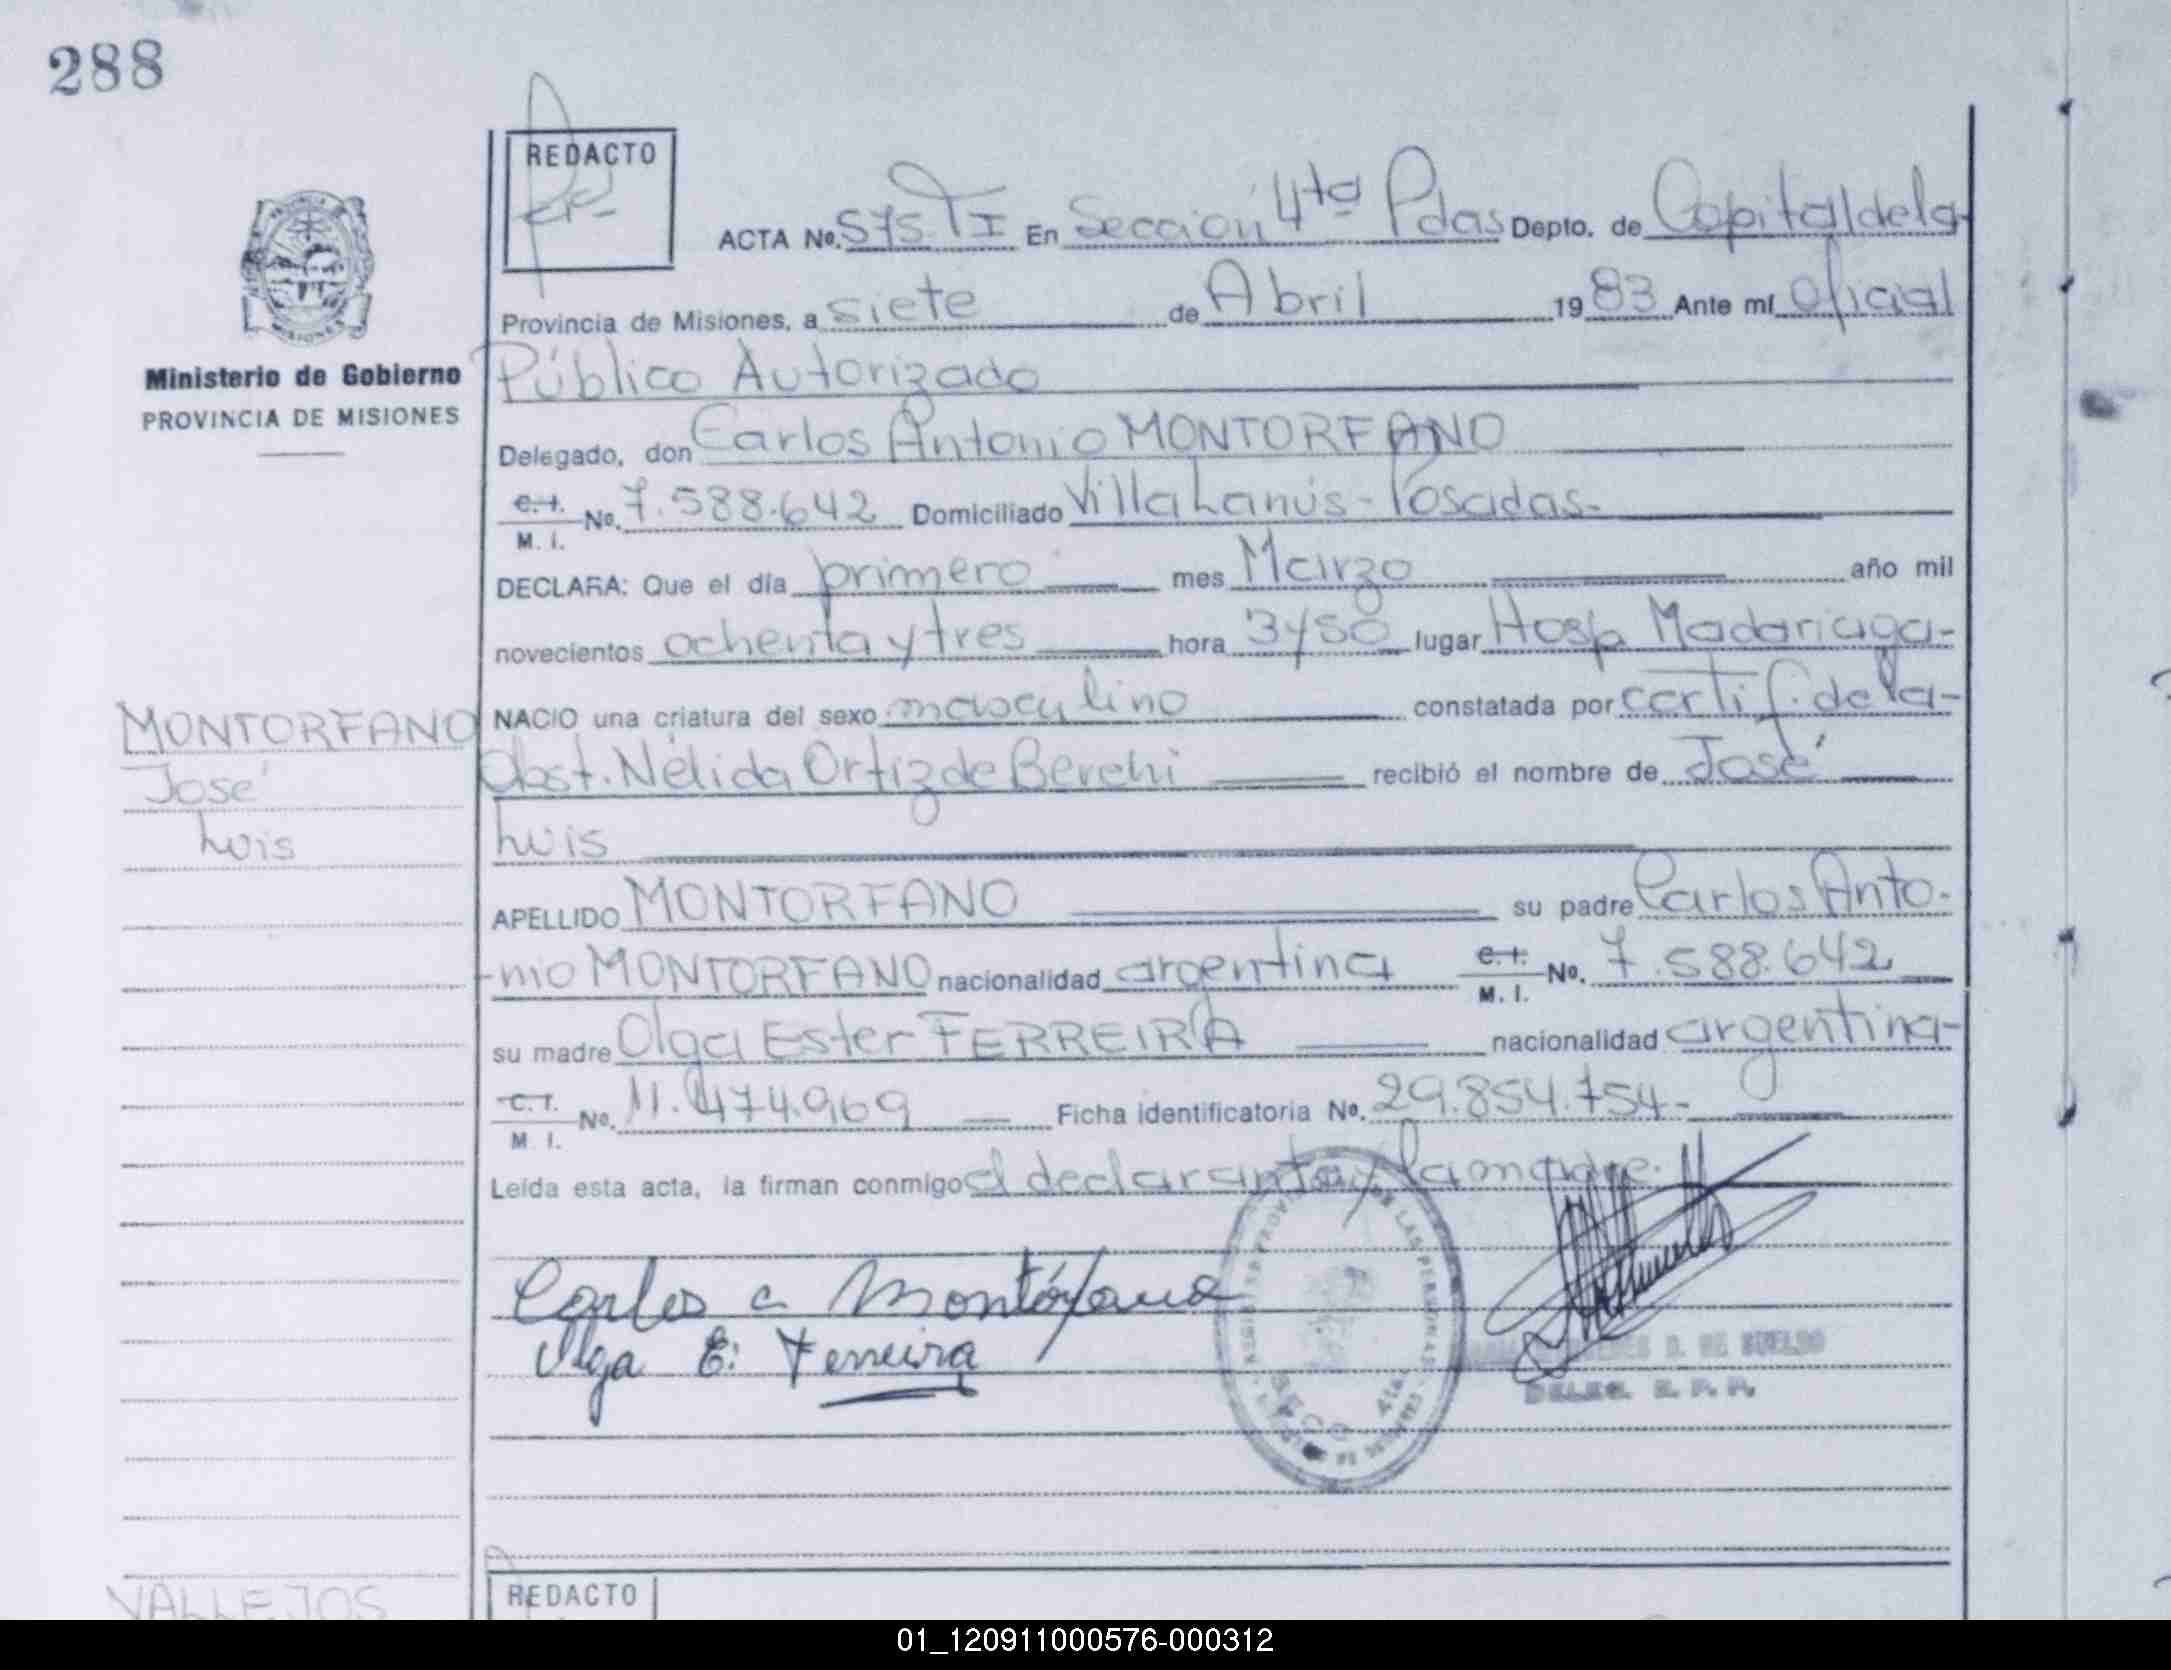 288
REDACTO
ACTA No. 575 TI En Sección 4ta Pdas Depto. de Capital de la
Provincia de Misiones, a siete de Abril 1983 Ante mí Oficial
Ministerio de Gobierno
PROVINCIA DE MISIONES
Público Autorizado
Delegado, don Carlos Antonio MONTORFANO
C.I. M. I. No. 7.588.642 Domiciliado Villa Lanús - Posadas-
DECLARA: Que el día primero mes Marzo año mil
novecientos ochenta y tres hora 3y50 lugar Hosp Madariaga-
MONTORFANO
José
Luis
NACIO una criatura del sexo masculino constatada por certif. de la-
Obst. Nélida Ortiz de Berchi recibió el nombre de José
Luis
APELLIDO MONTORFANO su padre Carlos Anto-
-nio MONTORFANO nacionalidad argentina C.I. M. I. No. 7.588.642
su madre Olga Ester FERREIRA nacionalidad argentina-
C.I. M. I. No. 11.474.969 Ficha identificatoria No. 29.854.754-
Leída esta acta, la firman conmigo el declarante y la madre.
Carlos a Montórfano
Olga E. Ferreira
D. DE SUELDO
DELEG. R. P. P.
LAS PERSONAS
SECC 4ta
VALLEJOS
REDACTO
01_120911000576-000312